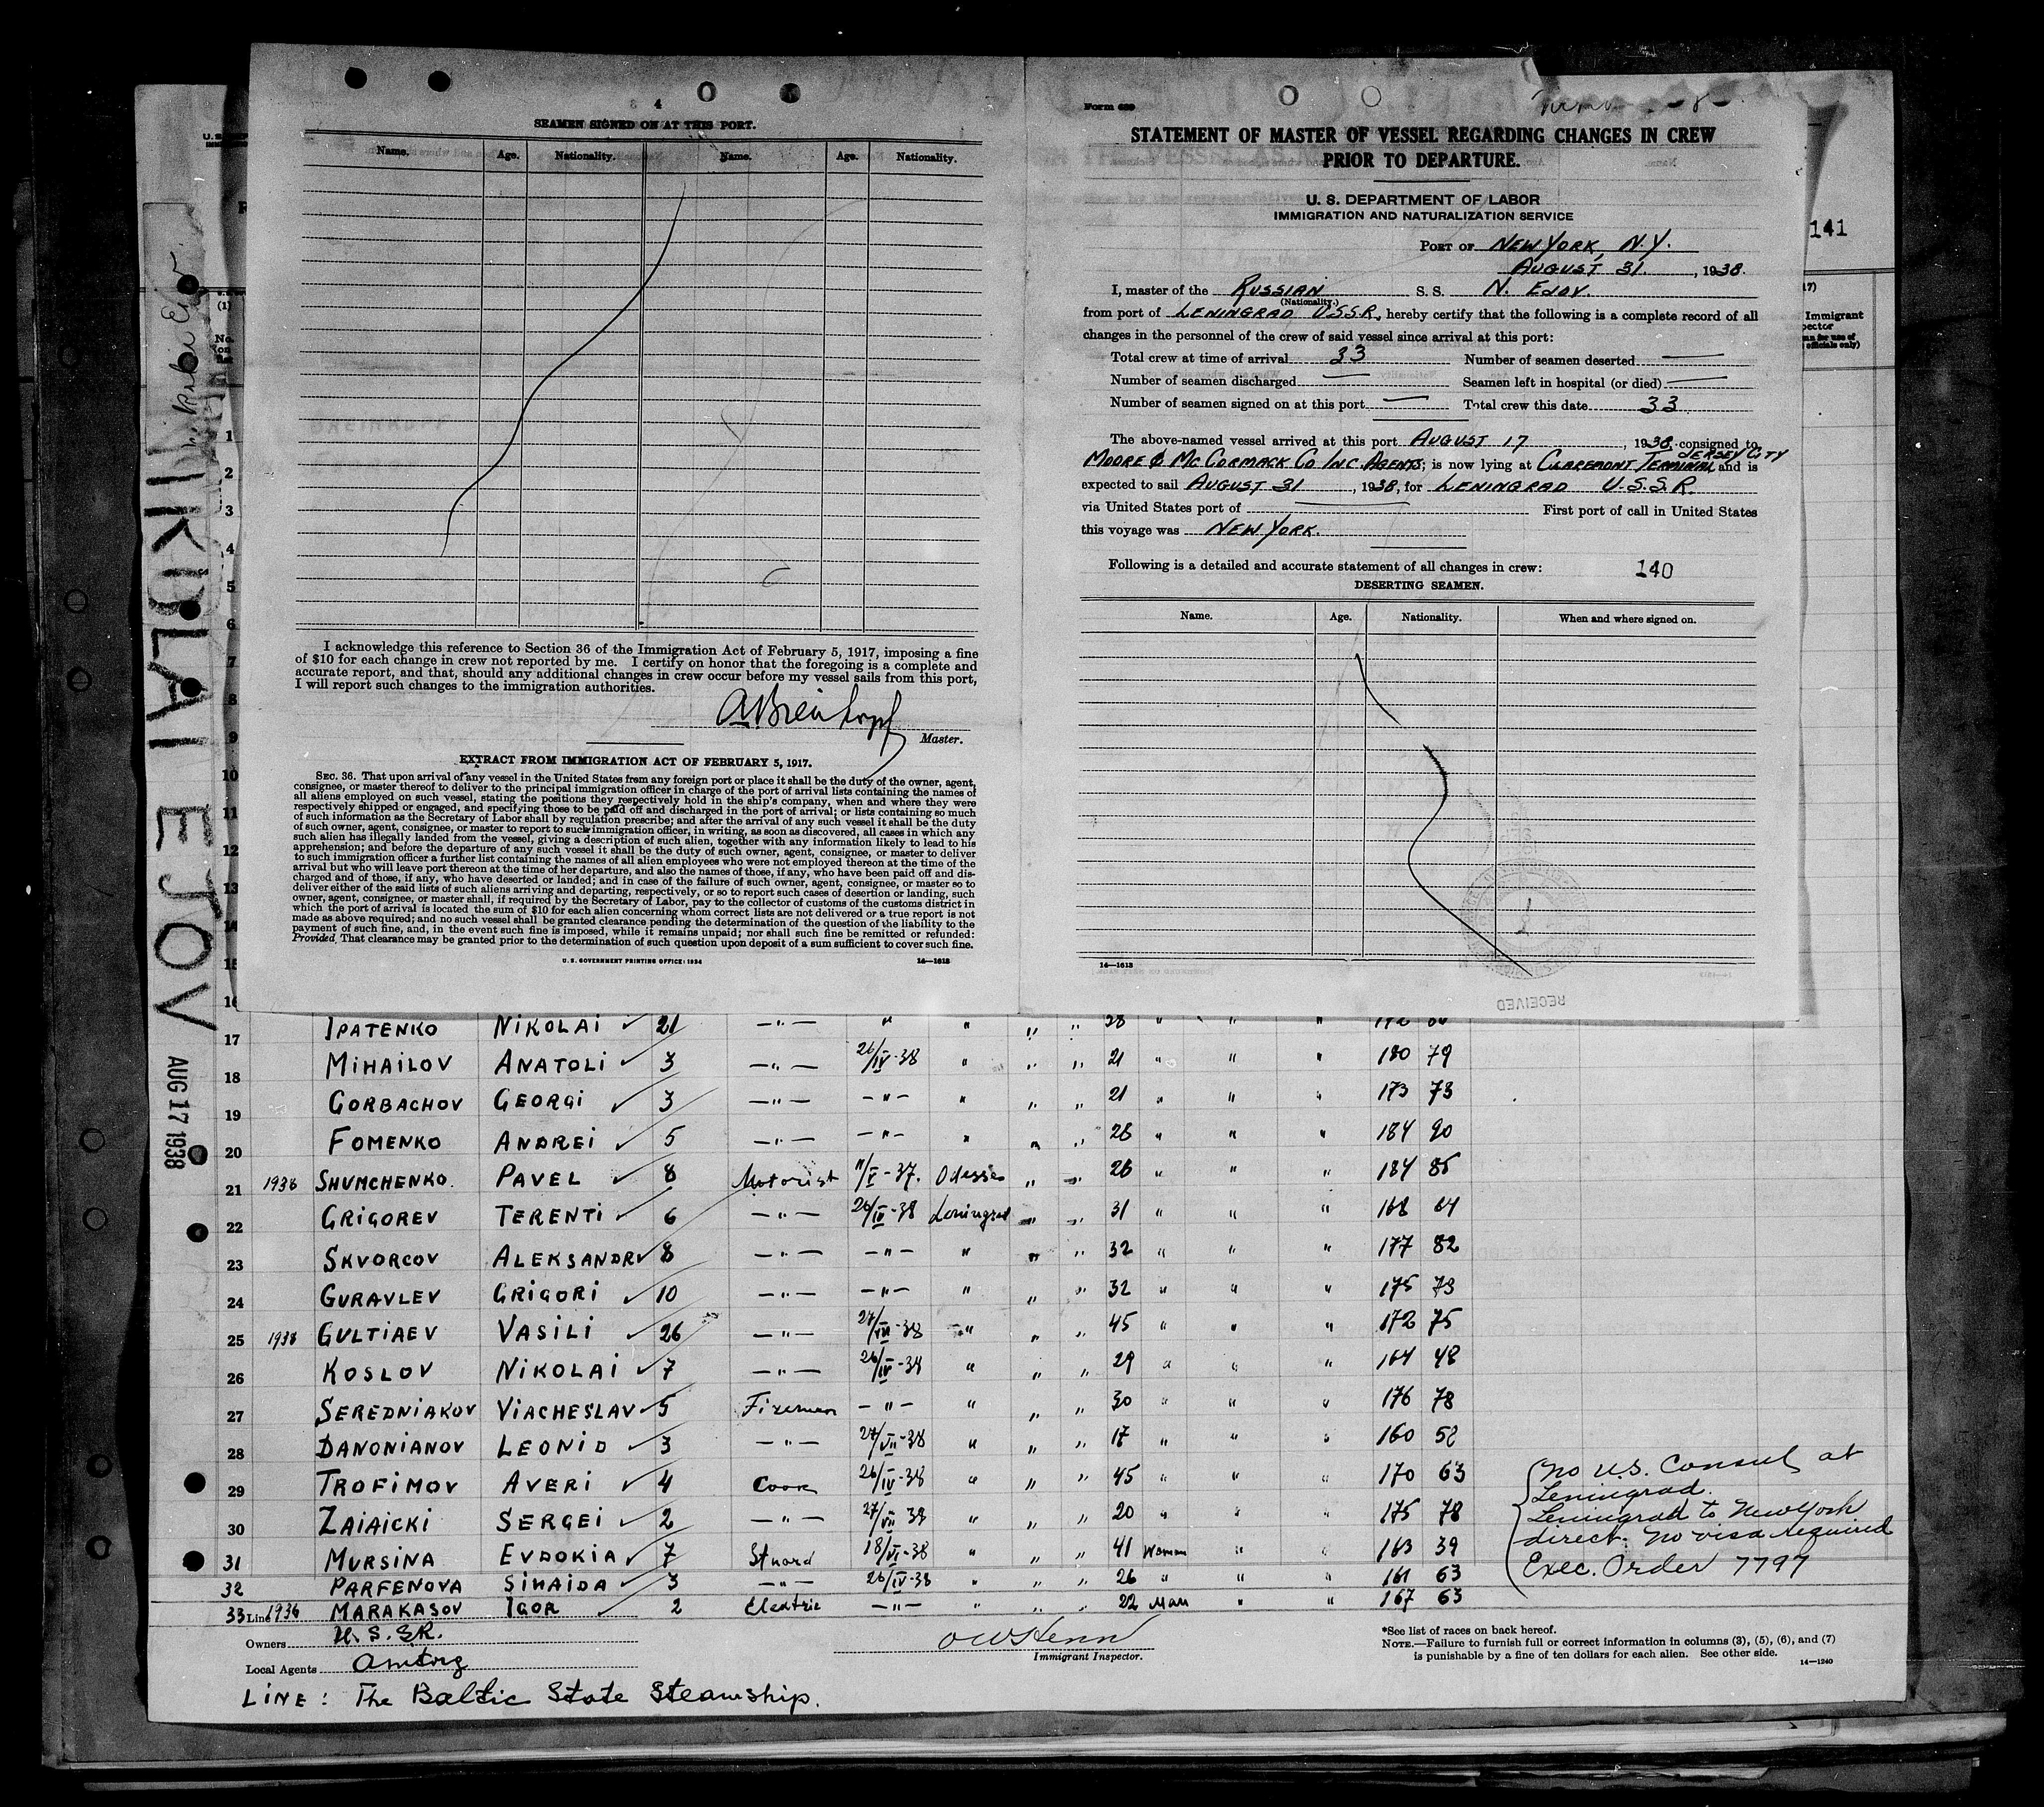 4
SEAMEN SIGNED ON AT THIS PORT.
Name. Age. Nationality. Name. Age. Nationality.
I acknowledge this reference to Section 36 of the Immigration Act of February 5, 1917, imposing a fine
of $10 for each change in crew not reported by me. I certify on honor that the foregoing is a complete and
accurate report, and that, should any additional changes in crew occur before my vessel sails from this port,
I will report such changes to the immigration authorities.
Master.
EXTRACT FROM IMMIGRATION ACT OF FEBRUARY 5, 1917.
SEC. 36. That upon arrival of any vessel in the United States from any foreign port or place it shall be the duty of the owner, agent,
consignee, or master thereof to deliver to the principal immigration officer in charge of the port of arrival lists containing the names of
all aliens employed on such vessel, stating the positions they respectively hold in the ship's company, when and where they were
respectively shipped or engaged, and specifying those to be paid off and discharged in the port of arrival; or lists containing so much
of such information as the Secretary of Labor shall by regulation prescribe; and after the arrival of any such vessel it shall be the duty
of such owner, agent, consignee, or master to report to such immigration officer, in writing, as soon as discovered, all cases in which any
such alien has illegally landed from the vessel, giving a description of such alien, together with any information likely to lead to his
apprehension; and before the departure of any such vessel it shall be the duty of such owner, agent, consignee, or master to deliver
to such immigration officer a further list containing the names of all alien employees who were not employed thereon at the time of the
arrival but who will leave port thereon at the time of her departure, and also the names of those, if any, who have been paid off and dis-
charged and of those, if any, who have deserted or landed; and in case of the failure of such owner, agent, consignee, or master so to
deliver either of the said lists of such aliens arriving and departing, respectively, or so to report such cases of desertion or landing, such
owner, agent, consignee, or master shall, if required by the Secretary of Labor, pay to the collector of customs of the customs district in
which the port of arrival is located the sum of $10 for each alien concerning whom correct lists are not delivered or a true report is not
made as above required; and no such vessel shall be granted clearance pending the determination of the question of the liability to the
payment of such fine, and, in the event such fine is imposed, while it remains unpaid; nor shall such fine be remitted or refunded:
Provided, That clearance may be granted prior to the determination of such question upon deposit of a sum sufficient to cover such fine.
U. S. GOVERNMENT PRINTING OFFICE: 1934 14—1613
Form 689
STATEMENT OF MASTER OF VESSEL REGARDING CHANGES IN CREW
PRIOR TO DEPARTURE.
U. S. DEPARTMENT OF LABOR
IMMIGRATION AND NATURALIZATION SERVICE
PORT OF NEW YORK, N.Y.
AUGUST 31, 1938.
I, master of the RUSSIAN S. S. N. EJOV.
(Nationality.)
from port of LENINGRAD U.S.S.R., hereby certify that the following is a complete record of all
changes in the personnel of the crew of said vessel since arrival at this port:
Total crew at time of arrival 33 Number of seamen deserted —
Number of seamen discharged — Seamen left in hospital (or died) —
Number of seamen signed on at this port — Total crew this date 33
The above-named vessel arrived at this port AUGUST 17, 1938, consigned to
JERSEY CITY
MOORE & MC CORMACK CO INC. AGENTS; is now lying at CLAREMONT TERMINAL and is
expected to sail AUGUST 31, 1938, for LENINGRAD U.S.S.R.
via United States port of — First port of call in United States
this voyage was NEW YORK.
Following is a detailed and accurate statement of all changes in crew: 140
DESERTING SEAMEN.
Name. Age. Nationality. When and where signed on.
14—1613
RECEIVED
141
Immigrant
NIKOLAI EJOV
AUG 17 1938
1
2
3
4
5
6
7
8
9
10
11
12
13
14
15
16
17 IPATENKO NIKOLAI ✓ 21 —"— " " " " 28 " " "
18 MIHAILOV ANATOLI ✓ 3 —"— 26/IV-38 " " " 21 " " " 180 79
19 GORBACHOV GEORGI ✓ 3 —"— —"— " " " 21 " " " 173 73
20 FOMENKO ANDREI ✓ 5 —"— —"— " " " 28 " " " 184 90
21 1938 SHUMCHENKO. PAVEL ✓ 8 Motorist 11/V-37. Odessa " " 26 " " " 184 85
22 GRIGOREV TERENTI ✓ 6 —"— 26/IV-38 Leningrad " " 31 " " " 168 64
23 SKVORCOV ALEKSANDR ✓ 8 —"— —"— " " " 32 " " " 177 82
24 GURAVLEV GRIGORI ✓ 10 —"— —"— " " " 32 " " " 175 73
25 1938 GULTIAEV VASILI ✓ 26 —"— 27/VII-38 " " " 45 " " " 172 75
26 KOSLOV NIKOLAI ✓ 7 —"— 26/IV-38 " " " 29 " " " 164 48
27 SEREDNIAKOV VIACHESLAV ✓ 5 Fireman —"— " " " 30 " " " 176 78
28 DANONIANOV LEONID ✓ 3 —"— 27/VII-38 " " " 17 " " " 160 52
29 TROFIMOV AVERI ✓ 4 Cook 26/IV-38 " " " 45 " " " 170 63
30 ZAIAICKI SERGEI ✓ 2 —"— 27/VII 38 " " " 20 " " " 175 78
31 MURSINA EVDOKIA ✓ 7 Stuard 18/VI-38 " " " 41 Woman " " 163 39
32 PARFENOVA SINAIDA ✓ 3 —"— 26/IV-38 " " " 26 " " " 161 63
33 Line 1936 MARAKASOV IGOR ✓ 2 Electric —"— " " " 22 Man " " 167 63
no U.S. Consul at
Leningrad.
Leningrad to New York
direct. No visa required
Exec. Order 7797
Owners U.S.S.R.
Local Agents Amtorg
LINE: The Baltic State Steamship.
Immigrant Inspector.
*See list of races on back hereof.
NOTE.—Failure to furnish full or correct information in columns (3), (5), (6), and (7)
is punishable by a fine of ten dollars for each alien. See other side.
14—1240